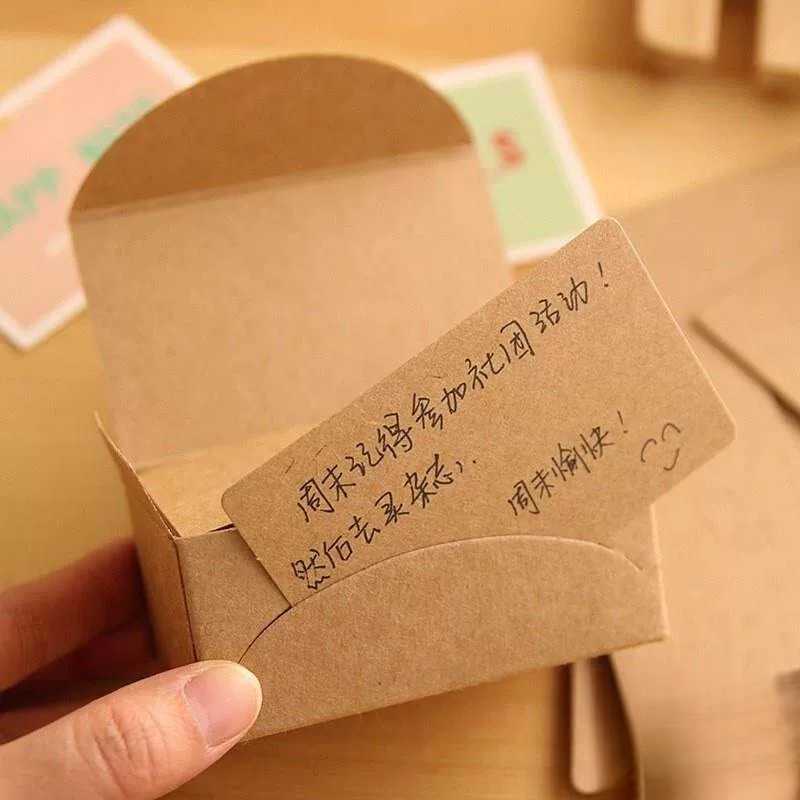 周末记得参加社团活动！
然后去买杂志。
周末愉快！